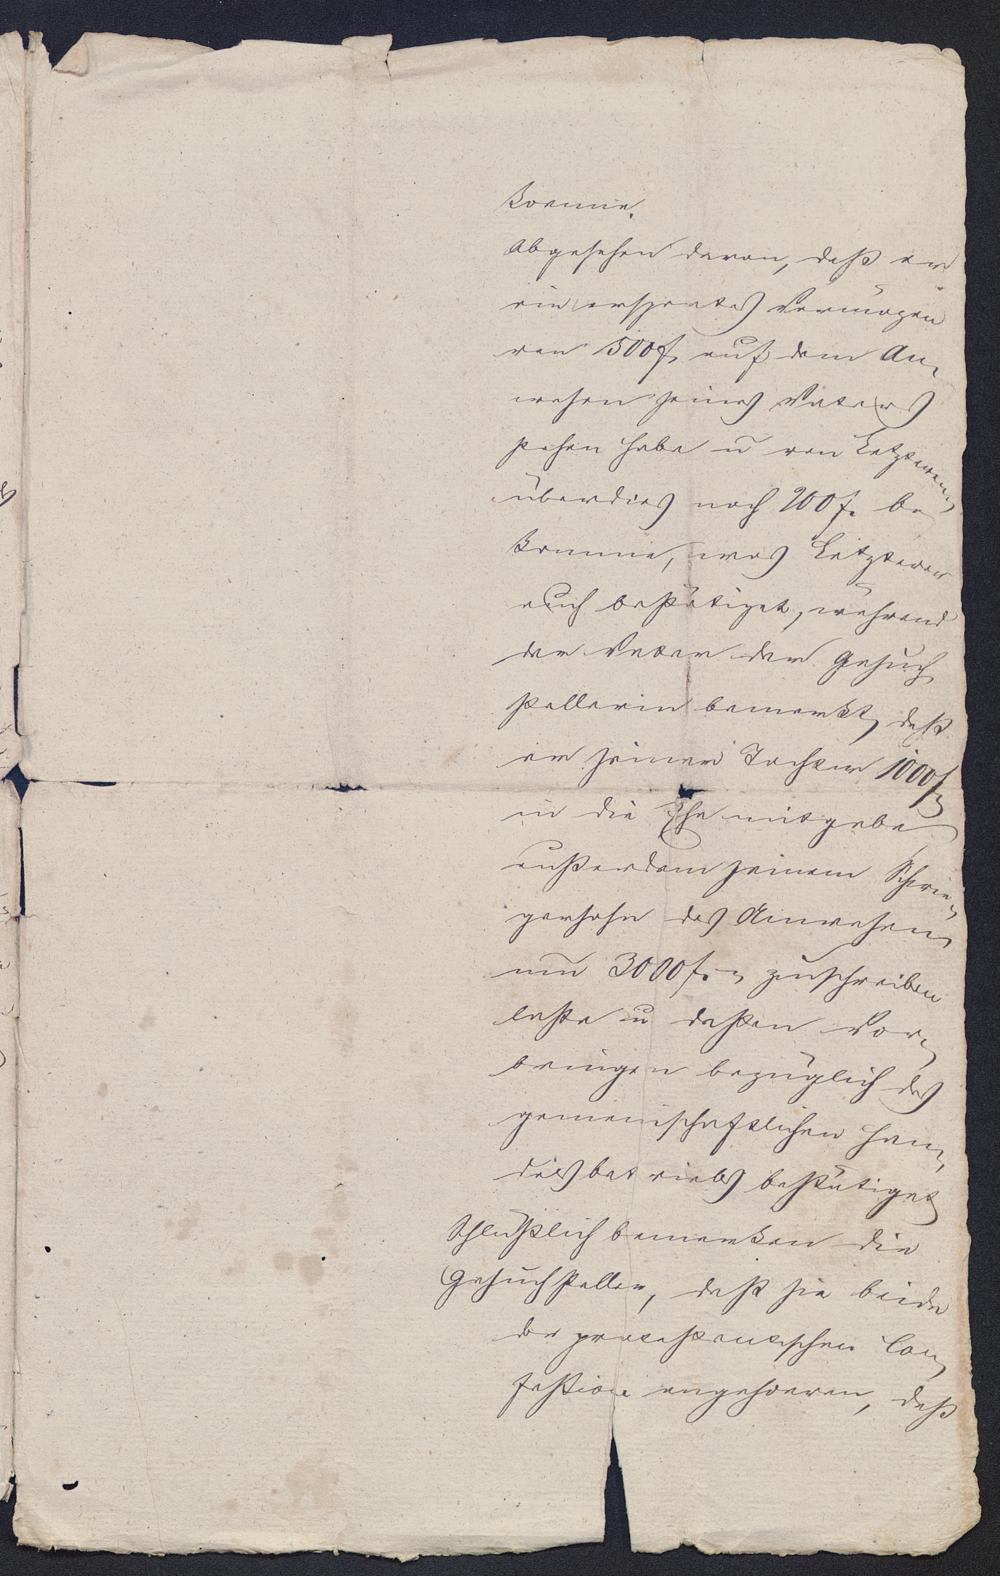 komme.
Abgesehen davon, daß er
ein erspartes Vermögen
von 500 f. auf dem An¬
wesen seines Vaters
stehen habe u von Letzteren
überdies noch 200 f. be
komme, was Letzterer
auch bestätiget, während
der Vater der Gesuch
stellerin bemerkt, daß
er seiner Tochter 1000 f.
in die Ehe mitgebe
außerdem seinem Schwie¬
gersohn das Anwesen
um 3000 f. zuschreiben
laße u deßen Vor¬
bringen bezüglich des
gemeinschaftlichen Han¬
delsbetriebs bestätiget
Schlüßlich bemerken die
Gesuchsteller, daß sie beide
der protestantischen Con¬
feßion angehoeren, daß